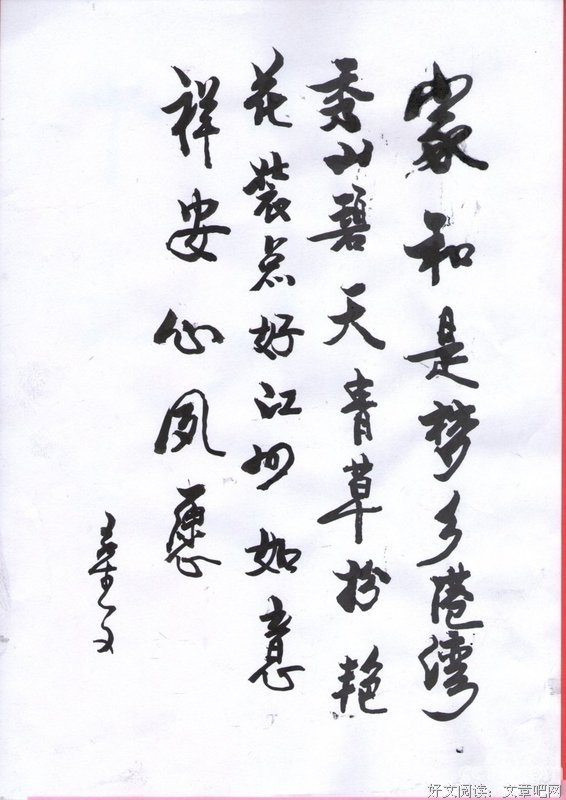 家和是梦乡港湾
秀山碧天青草粉艳
花装点好江州如意
祥安心夙愿
好文阅读：文章吧网